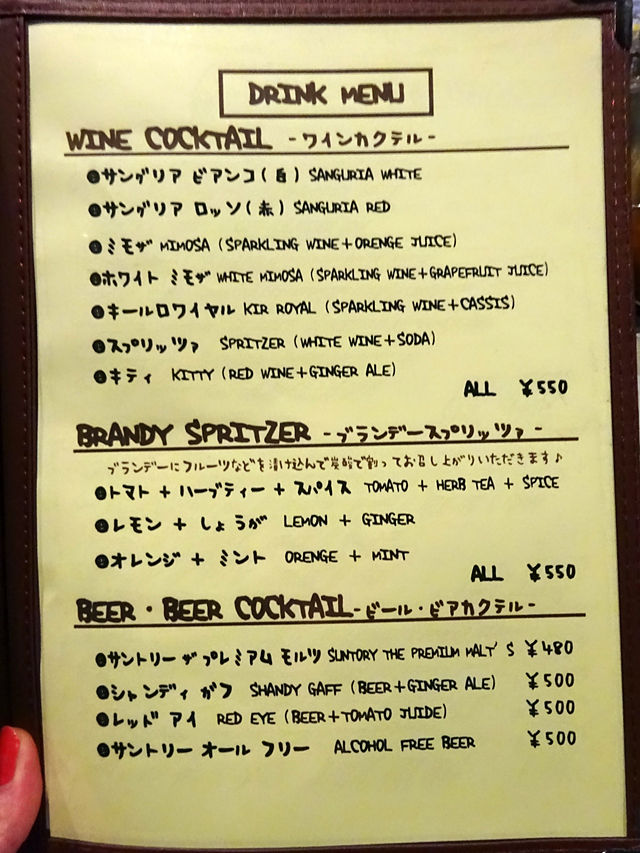 DRINK MENU
WINE COCKTAIL -ワインカクテル-
●サングリア ビアンコ(白) SANGURIA WHITE
●サングリア ロッソ(赤) SANGURIA RED
●ミモザ MIMOSA (SPARKLING WINE+ORENGE JUICE)
●ホワイト ミモザ WHITE MIMOSA (SPARKLING WINE+GRAPEFRUIT JUICE)
●キールロワイヤル KIR ROYAL (SPARKLING WINE+CASSIS)
●スプリッツァ SPRITZER (WHITE WINE+SODA)
●キティ KITTY (RED WINE+GINGER ALE)
ALL ¥550
BRANDY SPRITZER -ブランデースプリッツァ-
ブランデーにフルーツなどを漬け込んで炭酸で割ってお召し上がりいただきます♪
●トマト + ハーブティー + スパイス TOMATO + HERB TEA + SPICE
●レモン + しょうが LEMON + GINGER
●オレンジ + ミント ORENGE + MINT
ALL ¥550
BEER・BEER COCKTAIL-ビール・ビアカクテル-
●サントリー ザ プレミアム モルツ SUNTORY THE PREMIUM MALT'S ¥480
●シャンディ ガフ SHANDY GAFF (BEER+GINGER ALE) ¥500
●レッド アイ RED EYE (BEER+TOMATO JUIDE) ¥500
●サントリー オール フリー ALCOHOL FREE BEER ¥500